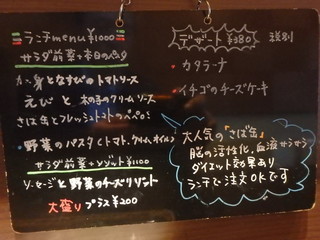 ランチmenu ¥1000
サラダ前菜+本日のパスタ
カニ身となすびのトマトソース
えびと木の子のクリームソース
さば缶とフレッシュトマトのペペロン
・野菜のパスタ(トマト,クリーム,オイル)
サラダ前菜+リゾット¥1100
ソーセージと野菜のチーズリゾット
大盛りプラス¥200
デザート ¥380 税別
・カタラーナ
・イチゴのチーズケーキ
大人気の"さば缶"
脳の活性化,血液サラサラ
ダイエット効果あり
ランチで注文OKです